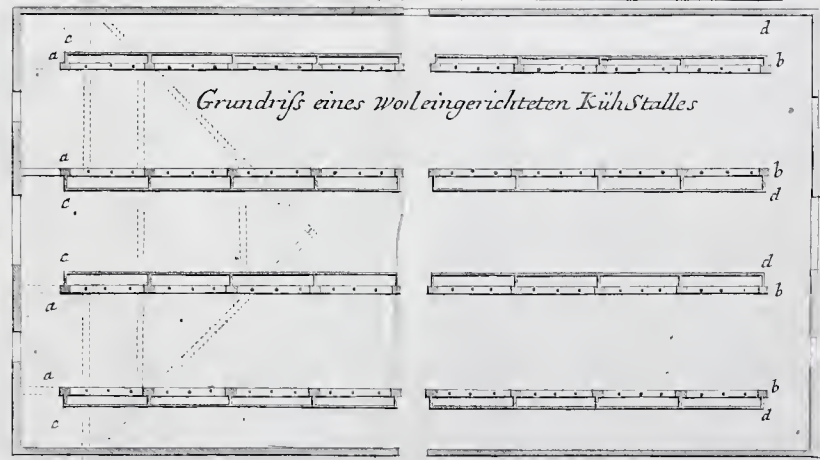 c d
a b
Grundriſs eines woleingerichteten KühStalles
a b
c d
c d
a b
a b
c d